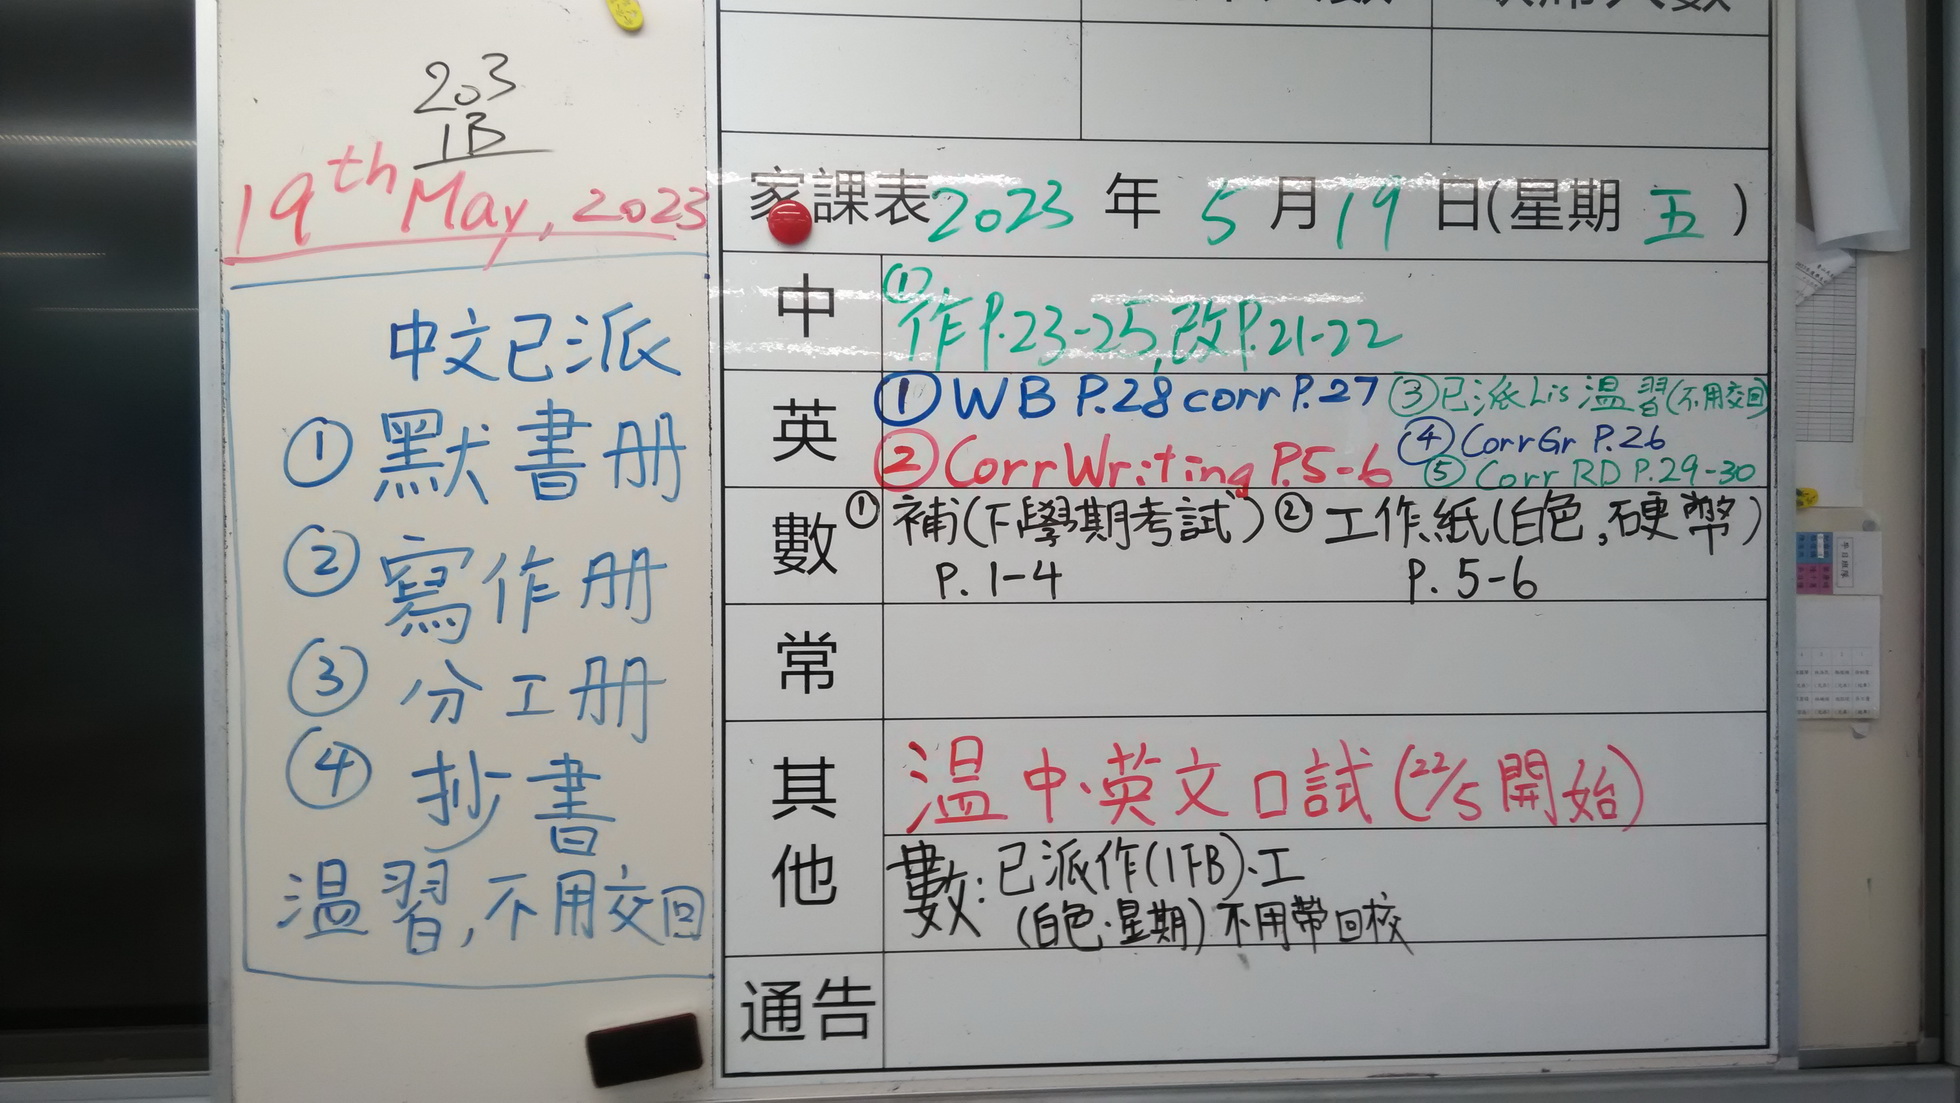 203
1B
19th May, 2023
中文已派
① 默書冊
② 寫作冊
③ 分工冊
④ 抄書
溫習,不用交回
家課表2023年5月19日(星期五)
中
① 作P.23-25,改P.21-22
英
① WB P.28 corr P.27
② Corr Writing P.5-6
③ 已派Lis溫習(不用交回)
④ Corr Gr P.26
⑤ Corr RD P.29-30
數
① 補(下學期考試) ② 工作紙(白色,硬幣)
P. 1-4 P. 5-6
常
其他
溫中、英文口試(22/5開始)
數:已派作(1下B)、工
(白色、星期)不用帶回校
通告